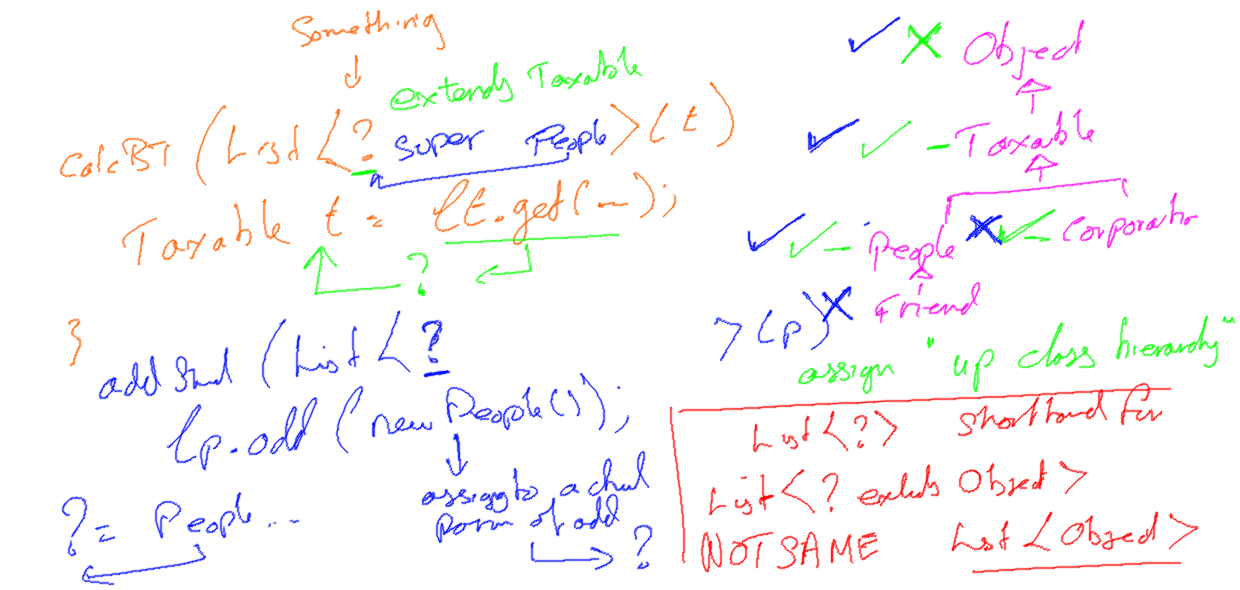 Something
extends Taxable
CalcBT (List <? super People> lt)
Taxable t = lt.get(~);
?
}
List < ?
lp.add (new People());
assign to actual
parm of add
?
? = People ...
Object
Taxable
People
Corporatio
Friend
> lp)
assign "up class hierarchy"
List <?> shorthand for
List < ? extends Object >
NOT SAME List < Object >